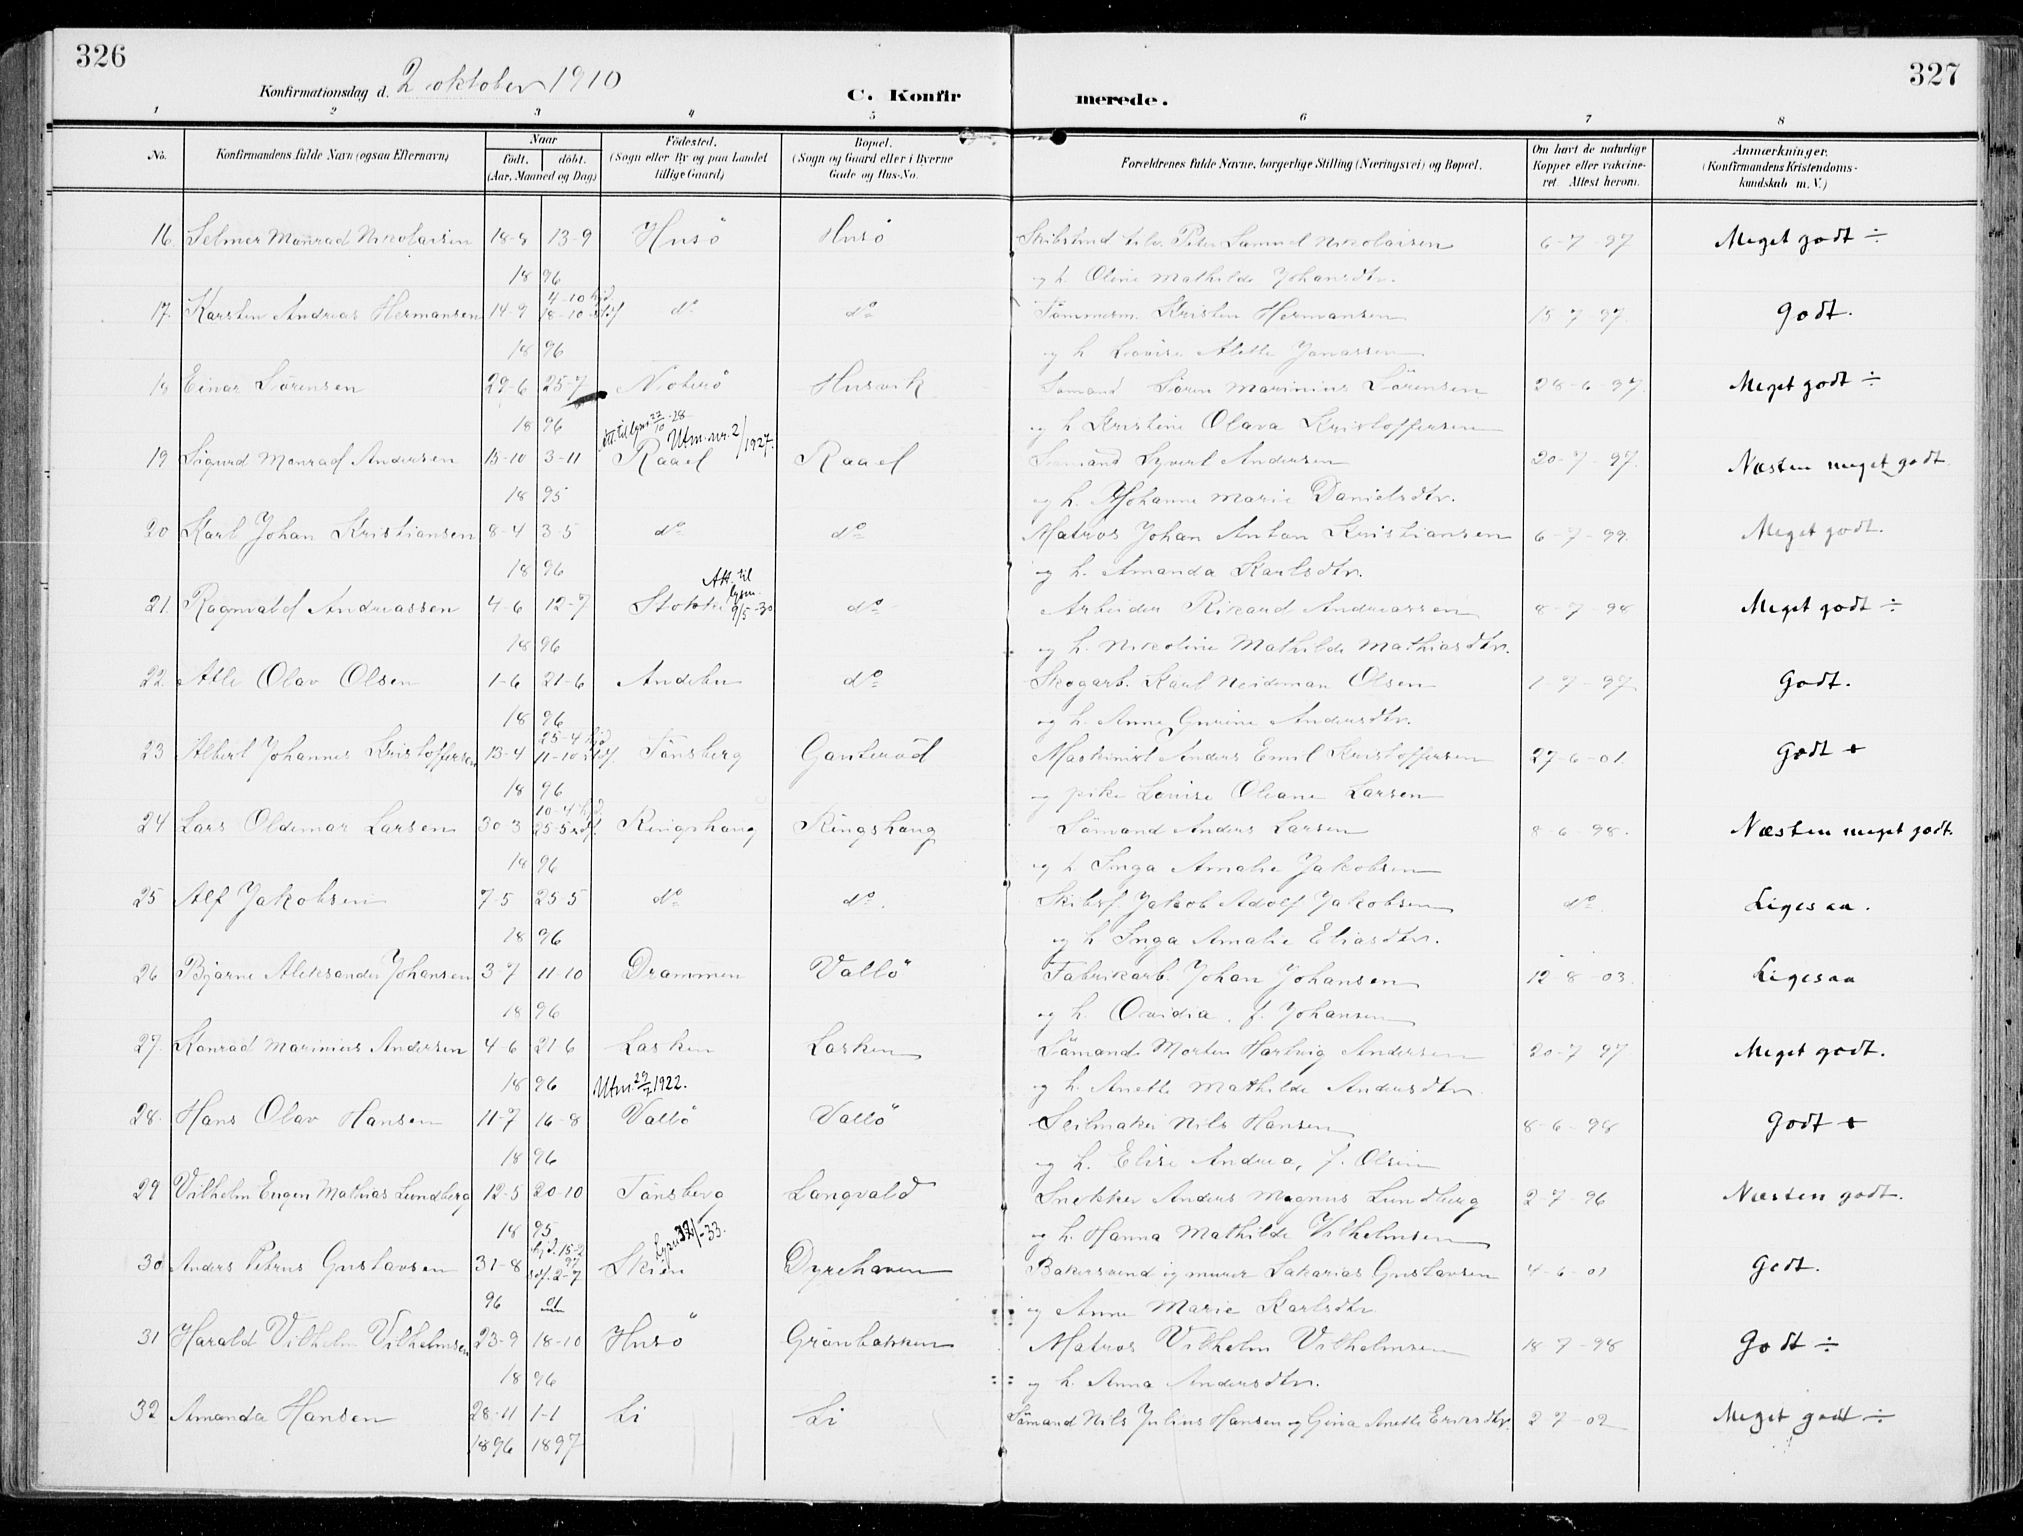 326
Konfirmationsdag d. 2 oktober 1910
C. Konfirmerede.
327
1 2 3 4 5 6 7 8
No.
Konfirmandens fulde Navn (ogsaa Efternavn)
Naar
født. døbt.
(Aar, Maaned og Dag)
Fødested.
(Sogn eller By og paa Landet
tillige Gaard)
Bopæl.
(Sogn og Gaard eller i Byerne
Gade og Hus-No.
Forældrenes fulde Navne, borgerlige Stilling (Næringsvei) og Bopæl.
Om havt de naturlige
Kopper eller vakcine-
ret Attest herom.
Anmærkninger.
(Konfirmandens Kristendoms-
kundskab m. V.)
16 Selmer Monrad Nikolaisen 18-8 13-9 Husö Husö Peter Samuel Nikolaisen 6-7-97 Meget godt ÷
18 96 og h. Oline Mathilde Johansdtr.
4-10 hjd.
17. Karsten Andreas Hermansen 14-9 18-10 do do Tömmerm. Kristen Hermansen 15-7-97. Godt.
18 96 og h. Lovise Alette Jonassen
18 Einar Sörensen 29-6 25-7 Nöterö Husvik Sömand Sören Marinius Sörensen 28-6-97. Meget godt ÷
18 96 og h. Kristine Olava Kristoffersen
Att. til lysn. 22/10-28
Utm. nr. 2/1927.
19 Sigurd Monrad Andersen 15-10 3-11 Raael Raael Sömand Syvert Andersen 20-7-97. Næsten meget godt.
18 95 og h. Johanne Marie Danielsdtr.
20 Karl Johan Kristiansen 8-4 3-5 do do Matros Johan Anton Kristiansen 6-7-99. Meget godt.
18 96 og h. Amanda Karlsdtr.
Att. til
lysn.
9/5-30
21. Ragnvald Andreassen 4-6 12-7 Stokke do Arbeider Rikard Andreassen 8-7-98 Meget godt ÷
18 96 og h. Nikoline Mathilde Mathiasdtr.
22. Atle Olav Olsen 1-6 21-6 Andebu do Skogarb. Karl Neideman Olsen 1-7-97 Godt.
18 96 og h. Anne Gurine Andersdtr.
25-4 hjd
23 Albert Johannes Kristoffersen 13-4 11-10 Tönsberg Ganteröd Maskinist Anders Emil Kristoffersen 27-6-01. Godt +
18 96 og pike Lovise Oleane Larsen
10-4 hjd
24 Lars Oldemar Larsen 30-3 25-5 Ringshaug Ringshaug Sömand Anders Larsen 8-6-98. Næsten meget godt.
18 96 og h Inga Amalie Jakobsen
25 Alf Jakobsen 7-5 25-5 do do. Skibsf. Jakob Adolf Jakobsen do Ligesaa.
18 96 og h Inga Amalie Eliasdtr.
26 Bjarne Aleksander Johansen 3-7 11-10 Drammen Vallö Fabrikarb. Johan Johansen 12-8-03. Ligesaa
18 96 og h. Ovidia f. Johansen
27. Konrad Marinius Andersen 4-6 21-6 Lasken Lasken Sömand Morten Hartvig Andersen 20-7 97 Meget godt.
18 96 og h. Anette Mathilde Andersdtr
Utm. 29/7 1922.
28. Hans Olav Hansen 11-7 16-8 Vallö Vallö Seilmaker Nils Hansen 8-6-98 Godt +
18 96 og h. Elise Andrea, f. Olsen
29 Vilhelm Eugen Mathias Lundberg 12-5 20-10 Tönsberg Langvald Snekker Anders Magnus Lundberg 2-7-96 Næsten godt.
18 95 og h. Hanna Mathilde Vilhelmsen
hjd. 15-2
97
30 Anders Petrus Gustavsen 31-8 2-7 Skien Dyrehaven Bakersvend og murer Sakarias Gustavsen 4-6-01 Godt.
96 01 og Anne Marie Karlsdtr
31 Harald Vilhelm Vilhelmsen 23-9 18-10 Husö Grönbakken Matros Vilhelm Vilhelmsen 18-7-98 Godt ÷
18 96 og h. Anna Andersdtr.
32 Amanda Hansen 28-11 1-1 Li Li Sömand Nils Julius Hansen og Gina Anette 2-7-02 Meget godt ÷
1896 1897